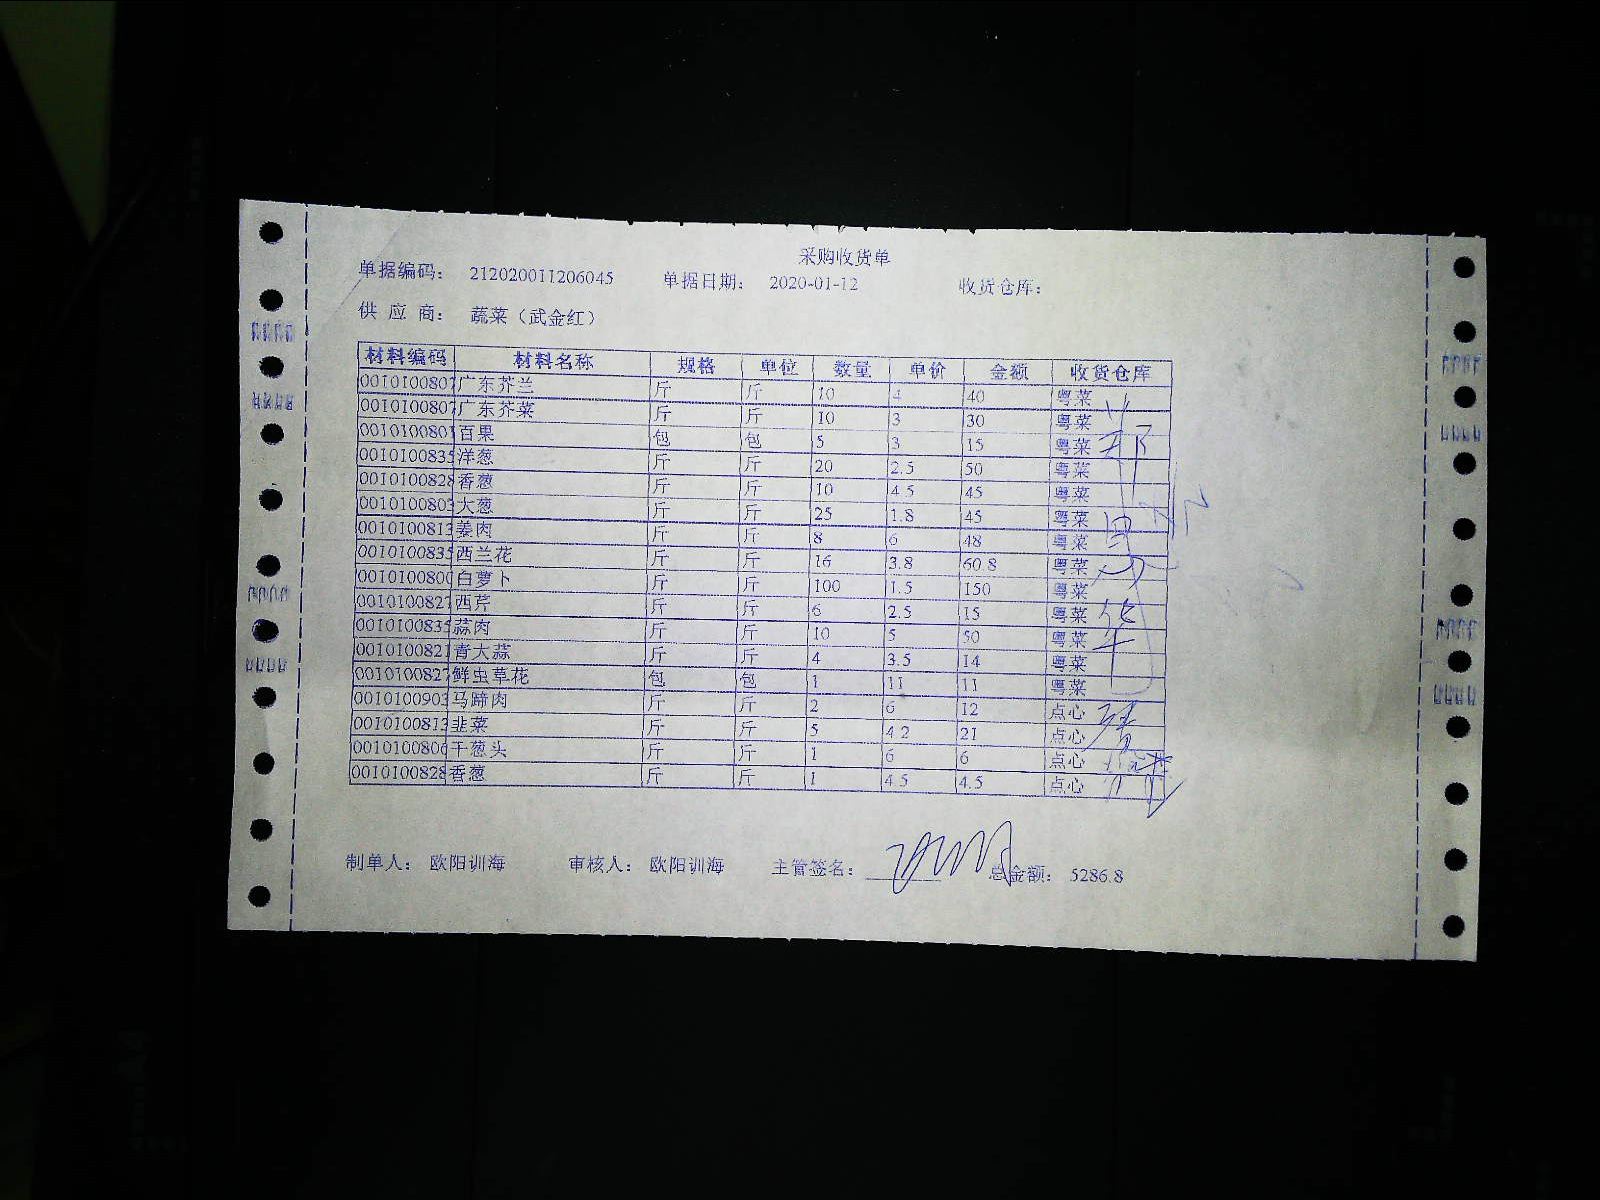 采购收货单
单据编码： 212020011206045 单据日期： 2020-01-12 收货仓库：
供 应 商： 蔬菜（武金红）
材料编码 材料名称 规格 单位 数量 单价 金额 收货仓库
0010100807 广东芥兰 斤 斤 10 4 40 粤菜
0010100807 广东芥菜 斤 斤 10 3 30 粤菜
0010100801 百果 包 包 5 3 15 粤菜
0010100835 洋葱 斤 斤 20 2.5 50 粤菜
0010100828 香葱 斤 斤 10 4.5 45 粤菜
0010100803 大葱 斤 斤 25 1.8 45 粤菜
0010100813 姜肉 斤 斤 8 6 48 粤菜
0010100835 西兰花 斤 斤 16 3.8 60.8 粤菜
0010100800 白萝卜 斤 斤 100 1.5 150 粤菜
0010100827 西芹 斤 斤 6 2.5 15 粤菜
0010100835 蒜肉 斤 斤 10 5 50 粤菜
0010100821 青大蒜 斤 斤 4 3.5 14 粤菜
0010100827 鲜虫草花 包 包 1 11 11 粤菜
0010100903 马蹄肉 斤 斤 2 6 12 点心
0010100813 韭菜 斤 斤 5 4.2 21 点心
0010100806 干葱头 斤 斤 1 6 6 点心
0010100828 香葱 斤 斤 1 4.5 4.5 点心
制单人： 欧阳训海 审核人： 欧阳训海 主管签名： 总金额： 5286.8